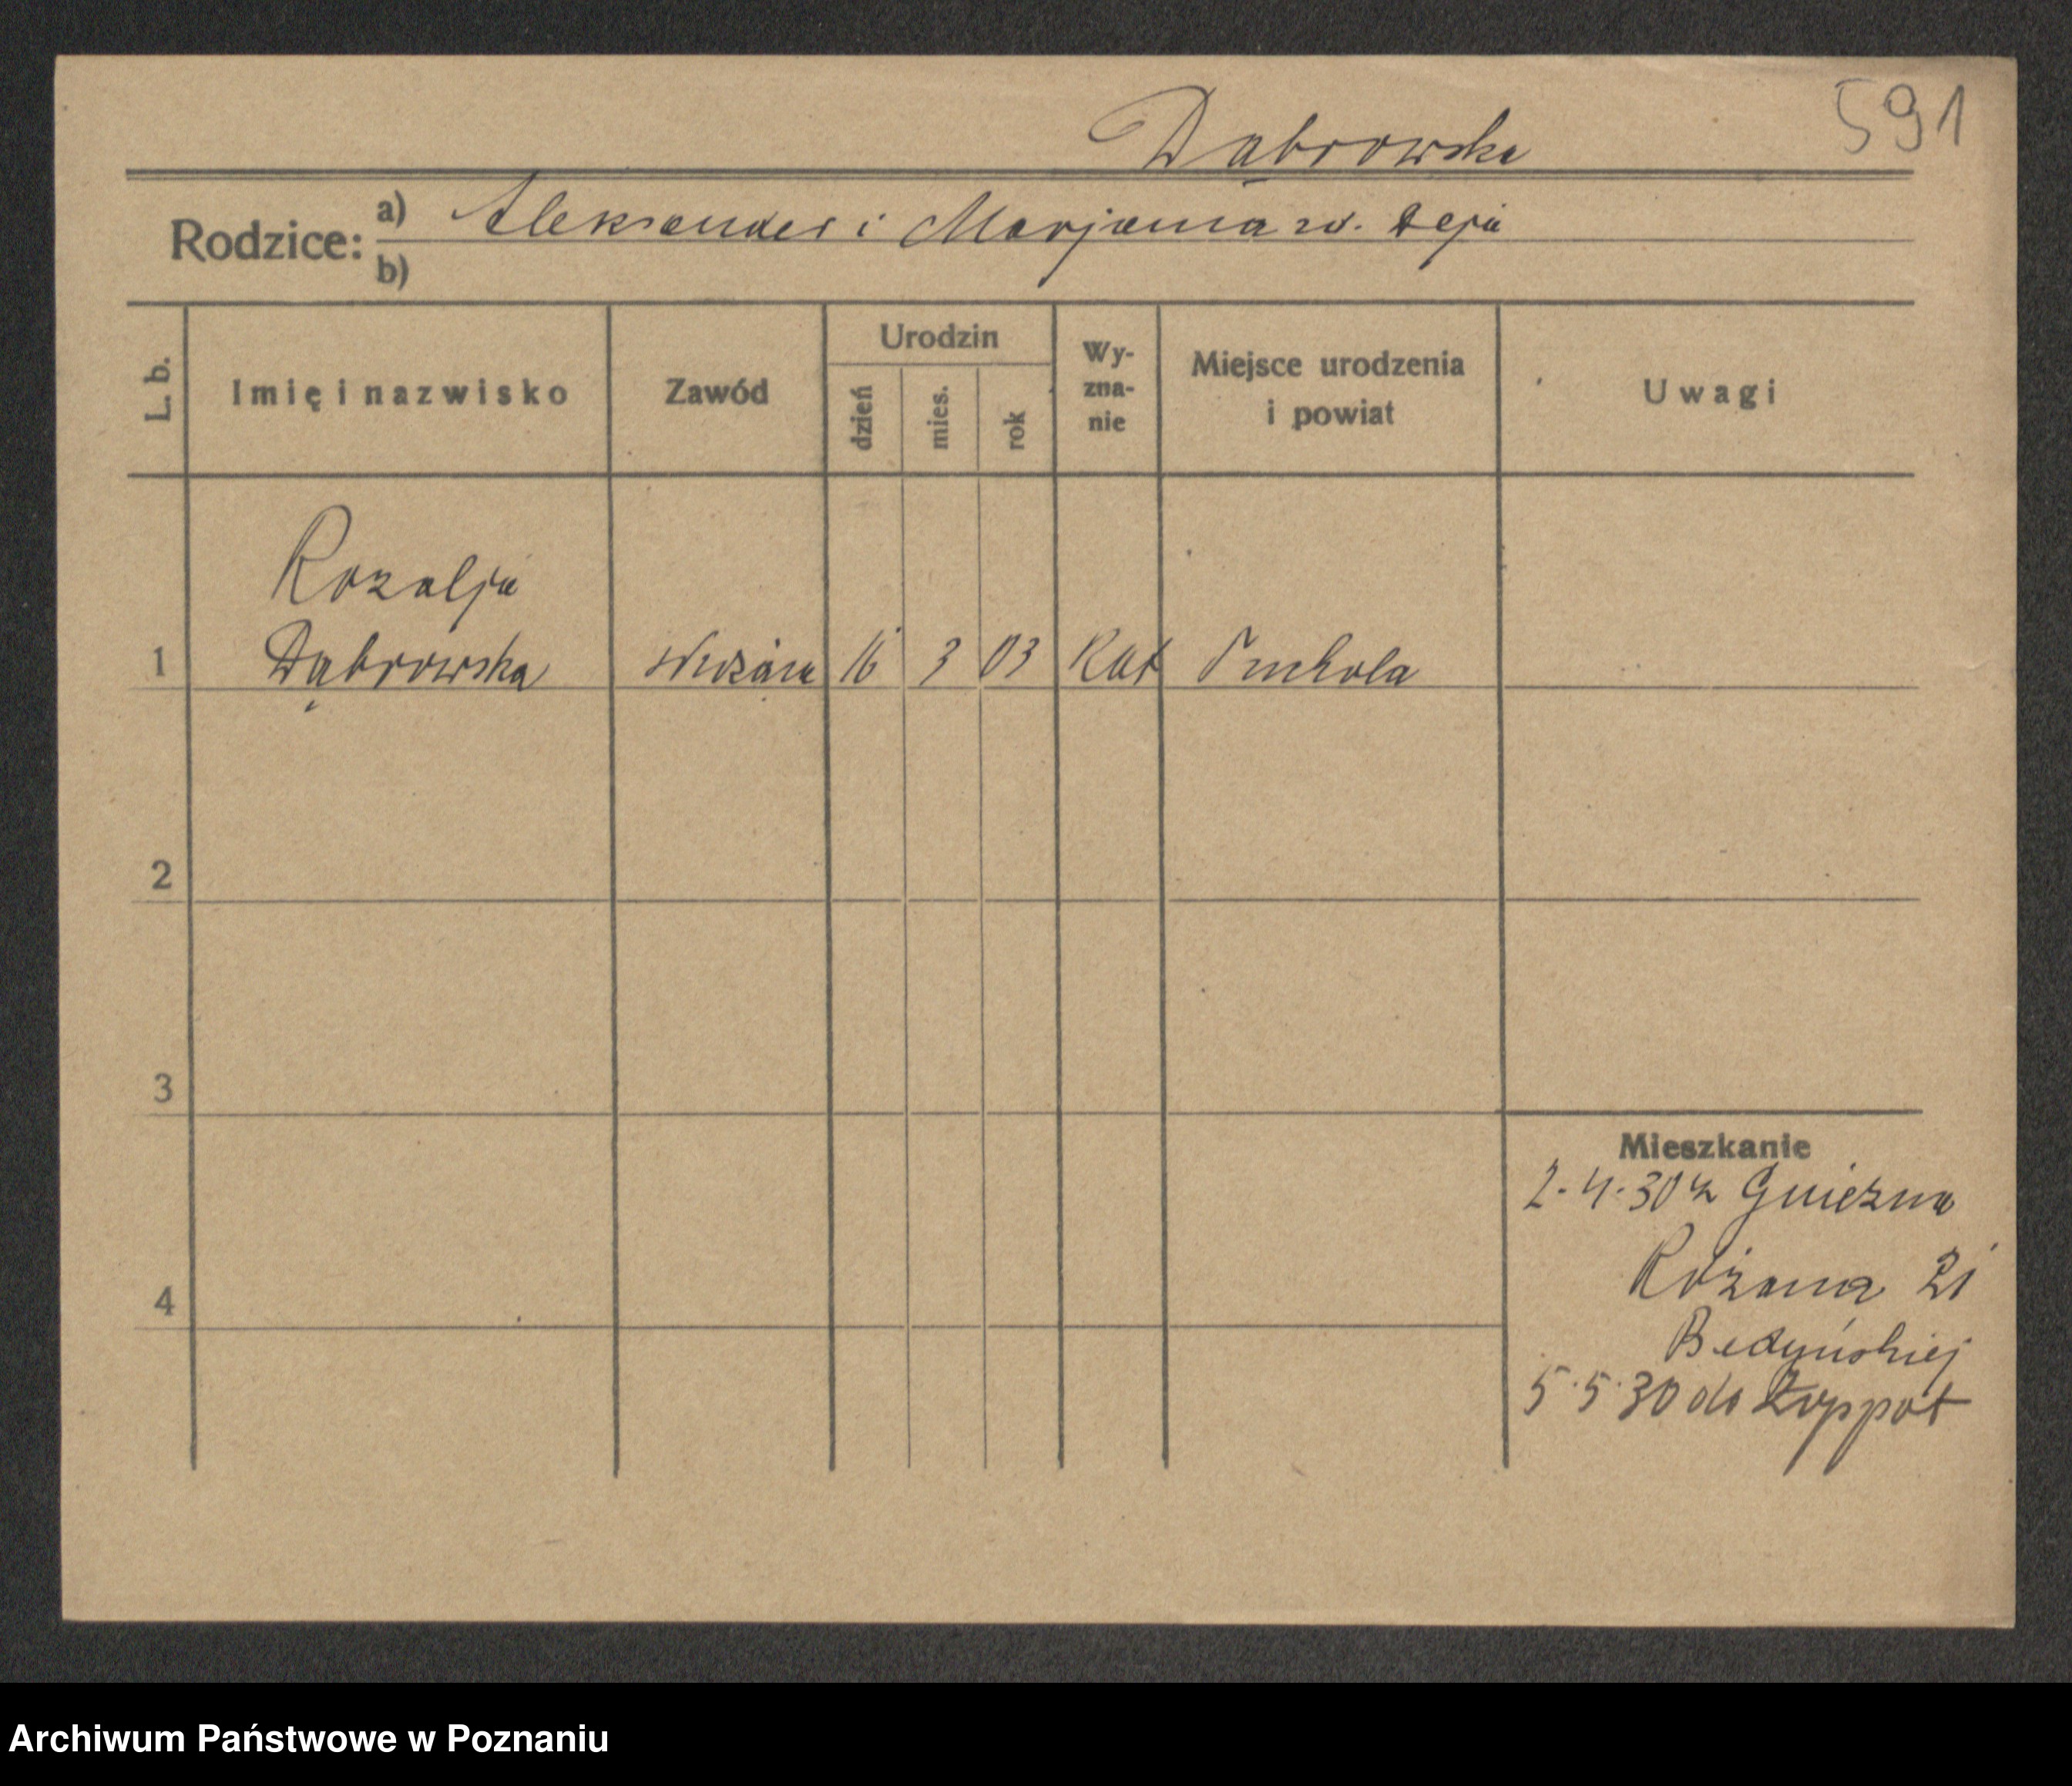 591
Dąbrowska
Rodzice: a) Aleksander i Marjanna zd. Deja
b)
L. b.
Imię i nazwisko
Zawód
Urodzin
dzień
mies.
rok
Wy-
zna-
nie
Miejsce urodzenia
i powiat
Uwagi
Rozalja
1 Dąbrowska 16 3 03 Kat
2
3
4
Mieszkanie
2.4.30 z Gniezna
Różana 21
5.5.30 do Zoppot
Archiwum Państwowe w Poznaniu